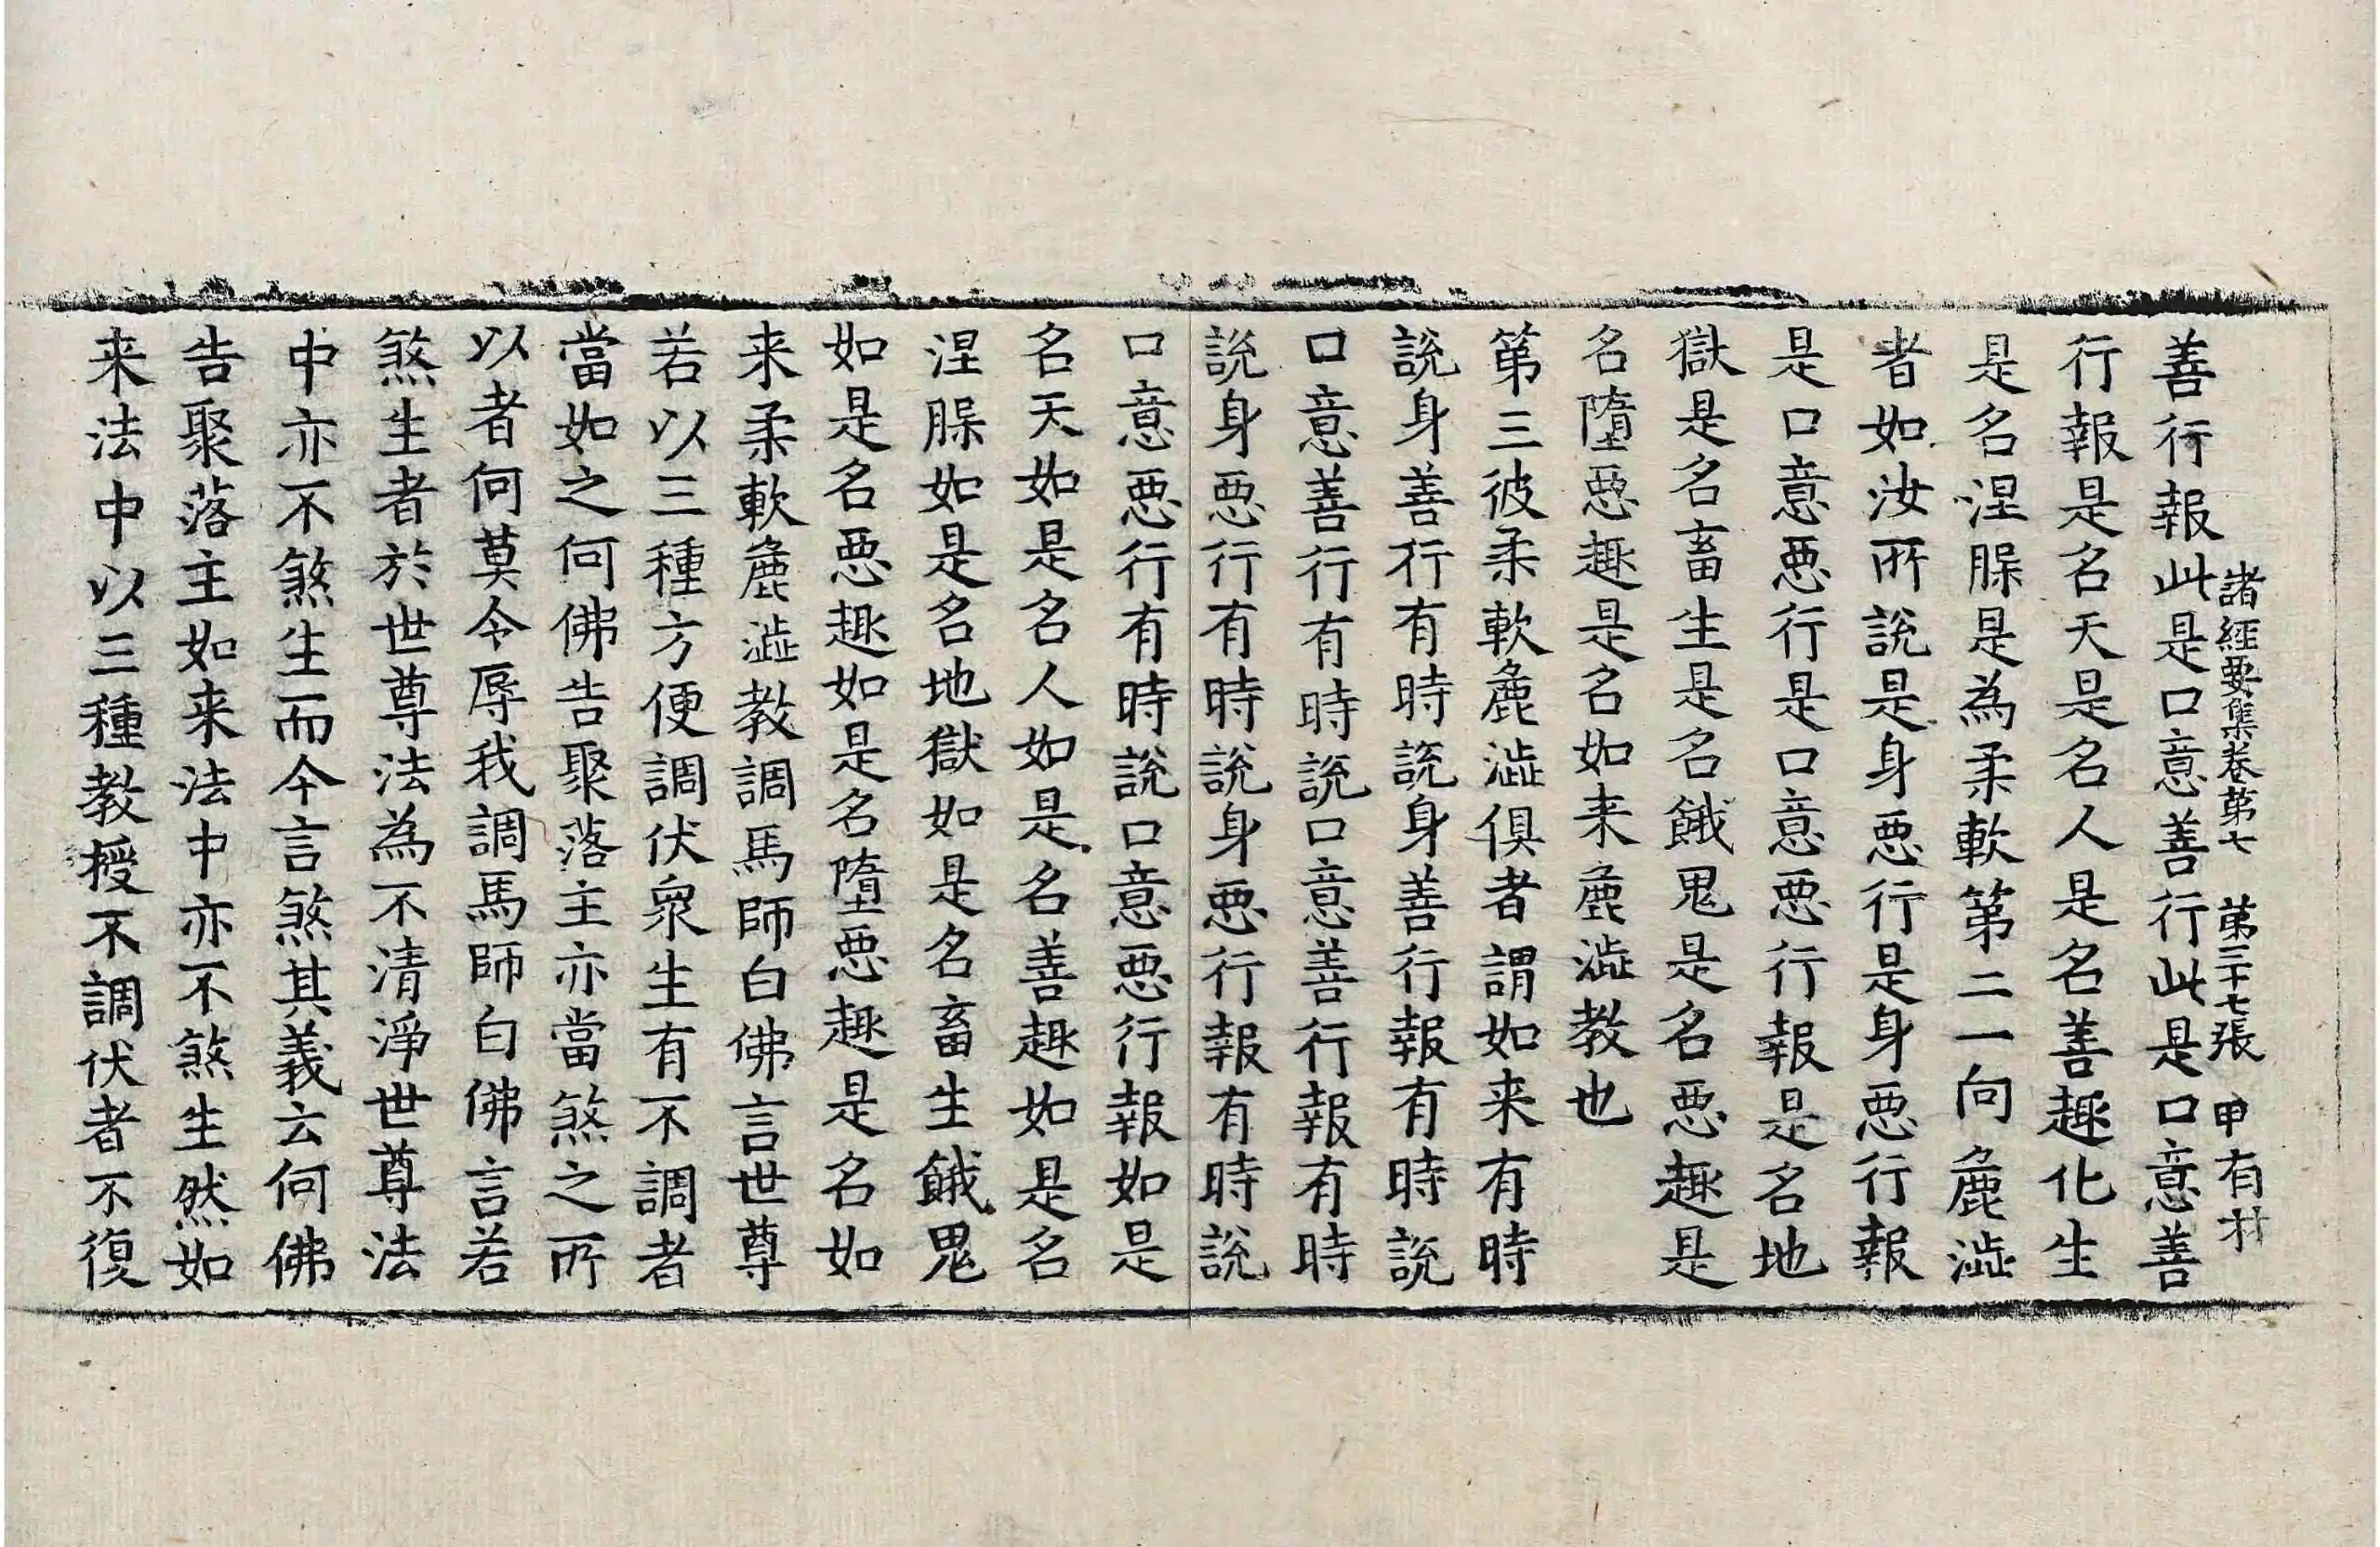 諸經要集卷第七　第三十七張　申有材
善行報此是口意善行此是口意善
行報是名天是名人是名善趣化生
是名涅脲是為柔軟第二一向麁澁
者如汝所說是身惡行是身惡行報
是口意惡行是口意惡行報是名地
獄是名畜生是名餓鬼是名惡趣是
名墮惡趣是名如来麁澁教也
第三彼柔軟麁澁俱者謂如来有時
說身善行有時說身善行報有時說
口意善行有時說口意善行報有時
說身惡行有時說身惡行報有時說
口意惡行有時說口意惡行報如是
名天如是名人如是名善趣如是名
涅脲如是名地獄如是名畜生餓鬼
如是名惡趣如是名墮惡趣是名如
来柔軟麁澁教調馬師白佛言世尊
若以三種方便調伏衆生有不調者
當如之何佛告聚落主亦當煞之所
以者何莫令辱我調馬師白佛言若
煞生者於世尊法為不清淨世尊法
中亦不煞生而今言煞其義云何佛
告聚落主如来法中亦不煞生然如
来法中以三種教授不調伏者不復